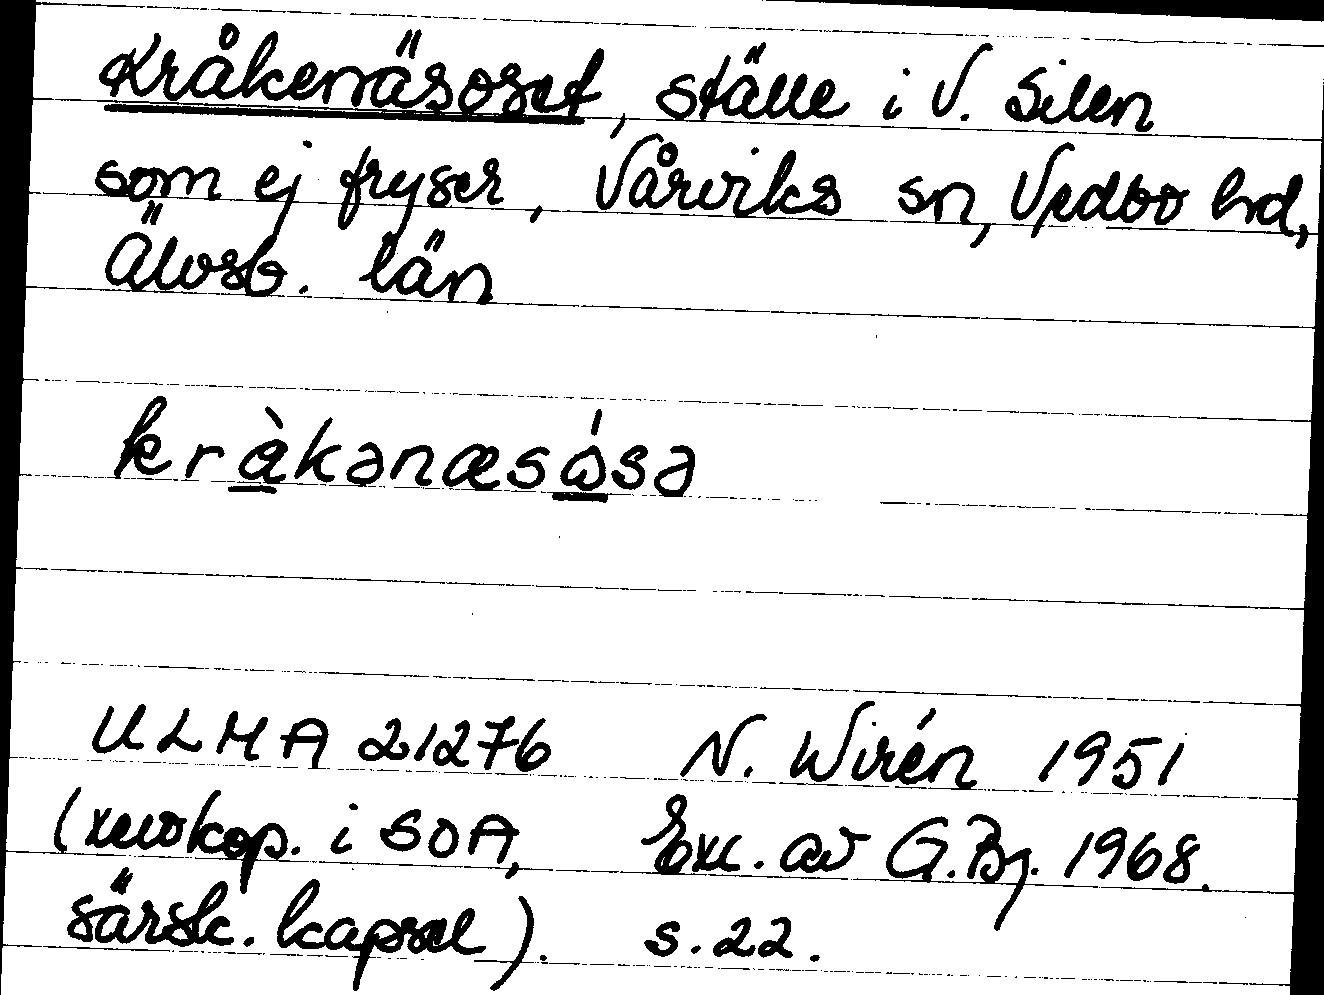 Kråkenäsoset, ställe i V. Silen
som ej fryser, Vårviks sn, Vedbo hd,
Älvsb. län
kràkənæsɷ́sə
ULMA 21276 N. Wirén 1951
(xerokop. i SOA, Exc. av G.Bj. 1968.
särsk. kapsel). s.22.